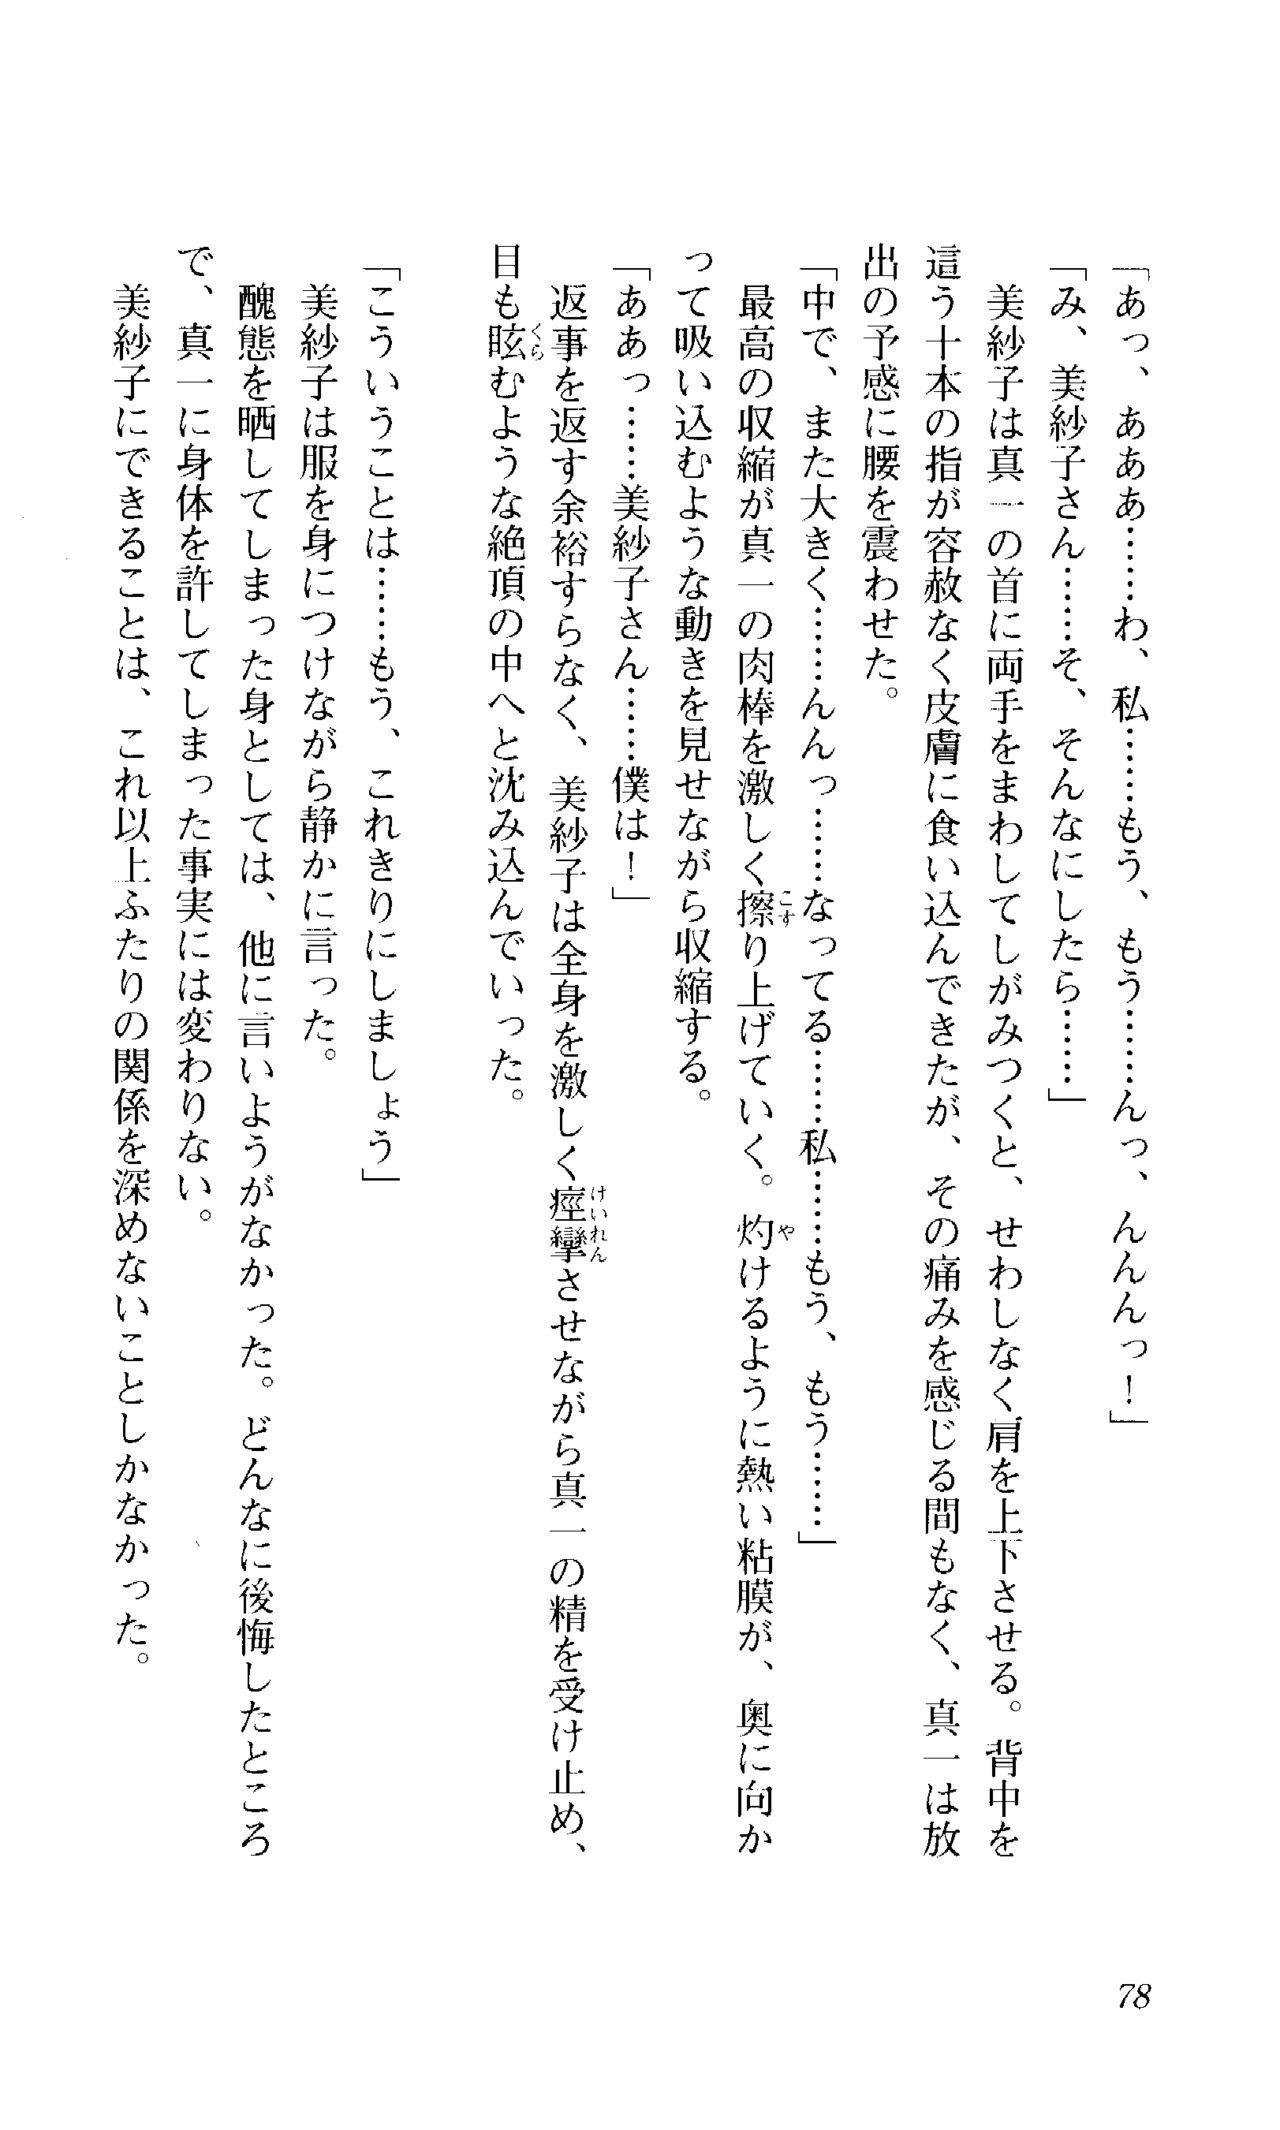 「あっ、あああ……わ、私……もう、もう……んっ、んんんっ！」
「み、美紗子さん……そ、そんなにしたら……」
美紗子は真一の首に両手をまわしてしがみつくと、せわしなく肩を上下させる。背中を
這う十本の指が容赦なく皮膚に食い込んできたが、その痛みを感じる間もなく、真一は放
出の予感に腰を震わせた。
「中で、また大きく……んんっ……なってる……私……もう、もう……」
最高の収縮が真一の肉棒を激しく擦り上げていく。灼けるように熱い粘膜が、奥に向か
って吸い込むような動きを見せながら収縮する。
「ああっ……美紗子さん……僕は！」
返事を返す余裕すらなく、美紗子は全身を激しく痙攣させながら真一の精を受け止め、
目も眩むような絶頂の中へと沈み込んでいった。
「こういうことは……もう、これきりにしましょう」
美紗子は服を身につけながら静かに言った。
醜態を晒してしまった身としては、他に言いようがなかった。どんなに後悔したところ
で、真一に身体を許してしまった事実には変わりない。
美紗子にできることは、これ以上ふたりの関係を深めないことしかなかった。
78